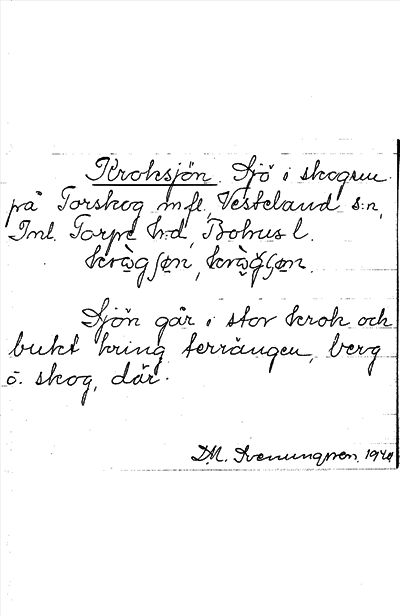 Kroksjön. Sjö i skogen
på Torskog m fl, Västerland s:n,
Inl. Torpe h:d, Bohus l.
Sjön går i stor krok och
bukt kring terrängen, berg
o. skog, där.
D.M. Svenungsen.